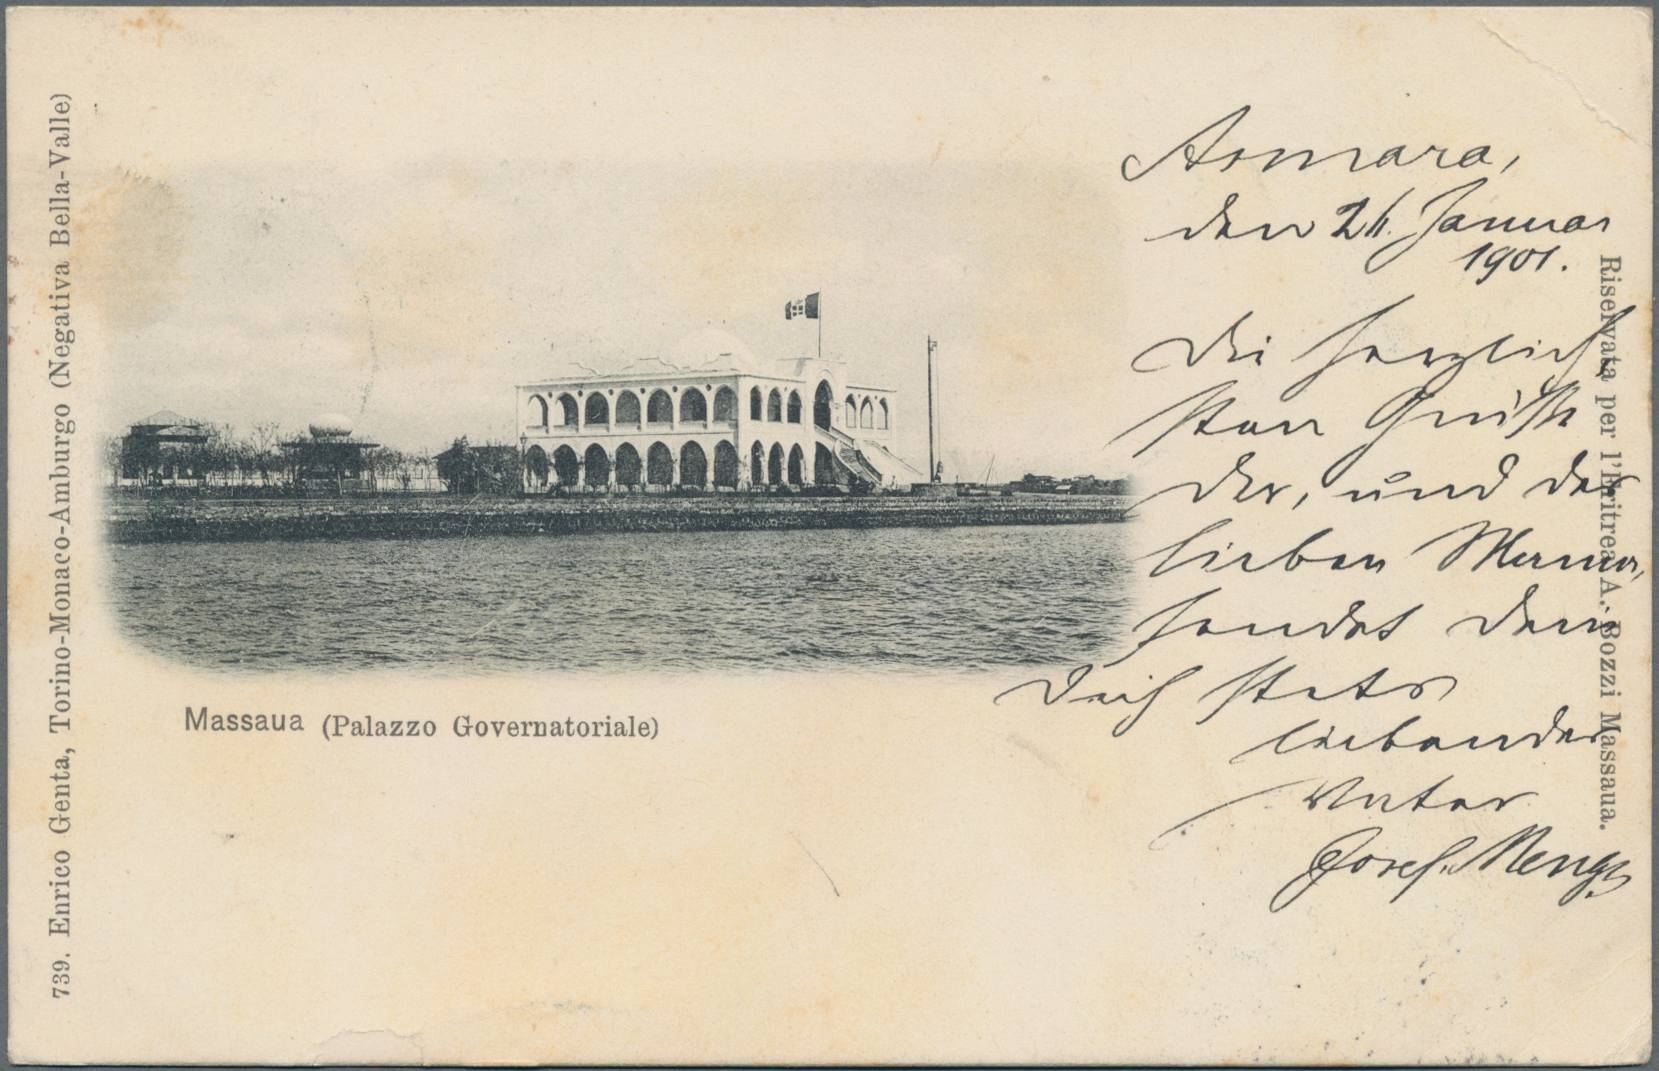 739. Enrico Genta, Torino-Monaco-Amburgo (Negativa Bella-Valle)
Massaua (Palazzo Governatoriale)
Riservata per l'Eritrea A. Bozzi Massaua.
Asmara,
den Januar
1901.
Die herzlich
sten Grüße
Dir, und der
lieben Mama,
sendet Dein
Dich stets
liebender
Vater
Josef Menges